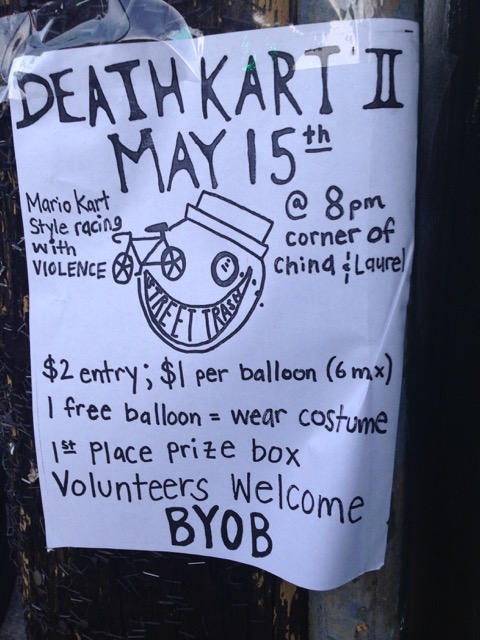 DEATH KART II
MAY 15th
Mario Kart
Style racing
with
VIOLENCE
@ 8pm
corner of
China & Laurel
STREET TRASH
$2 entry; $1 per balloon (6 max)
1 free balloon = wear costume
1st Place prize box
Volunteers Welcome
BYOB